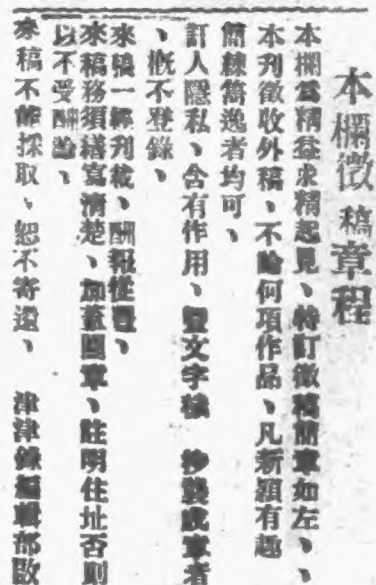 本欄徵稿章程
本欄為精益求精起見、特訂徵稿簡章如左、、
本刊徵收外稿、不論何項作品、凡新穎有趣
簡練雋逸者均可、
訐人隱私、含有作用、暨文字 抄襲成章者
、概不登錄、
來稿一經刊載、酬報從
來稿務須繕寫清楚、加蓋圖章、註明住址否則
以不受酬論、
來稿不能採取、恕不寄還、 津津錄編輯部啟